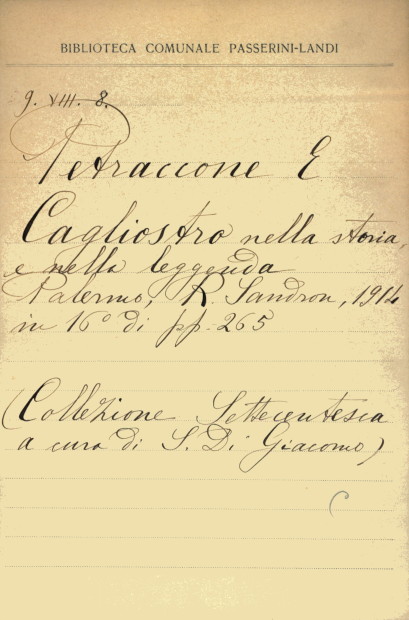 BIBLIOTECA COMUNALE PASSERINI-LANDI
9. VIII. 8.
Petraccone E
Cagliostro nella storia,
e nella leggenda
Palermo, R. Sandron, 1914
in 16° di pp. 265
(Collezione Settecentesca
a cura di S. Di Giacomo)